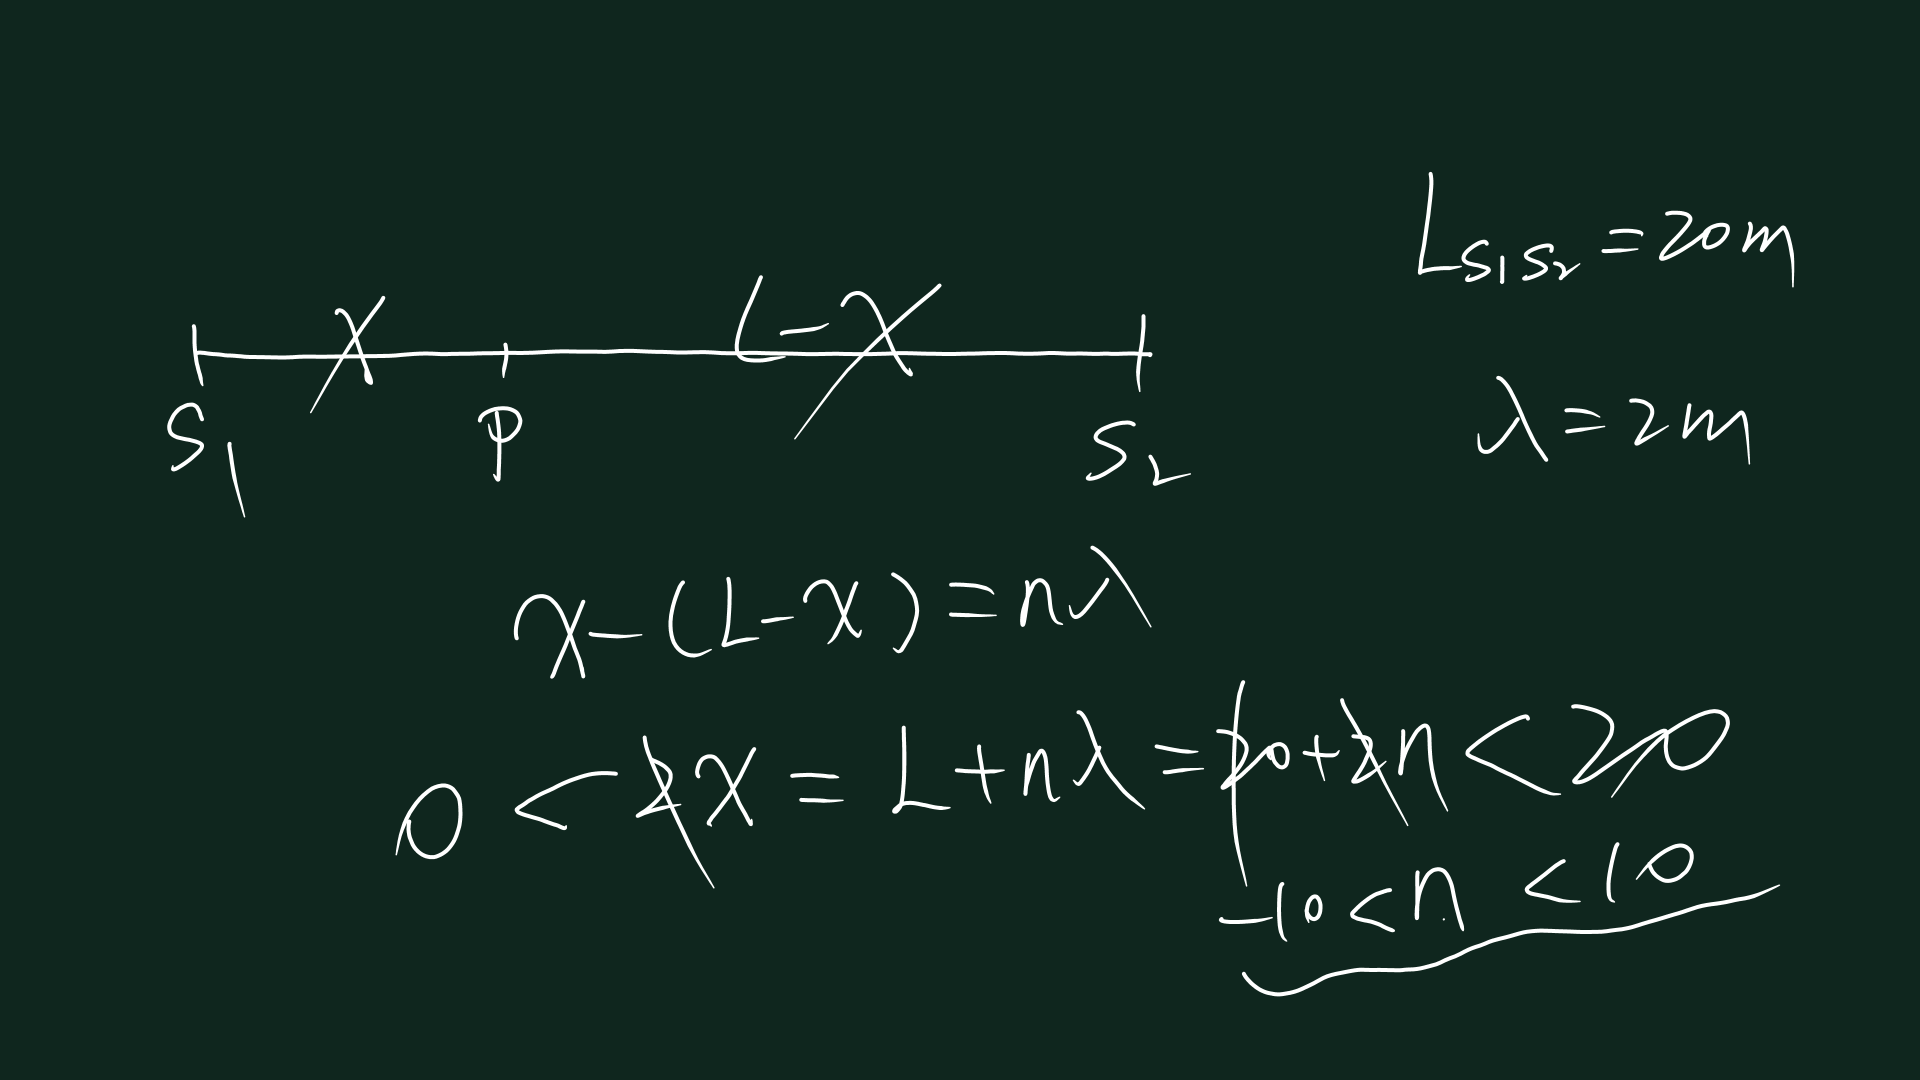 x L-x
S₁ P S₂
L_{S₁S₂}=20m
λ=2m
x-(L-x)=nλ
0<2x=L+nλ=20+2n<20
-10<n<10